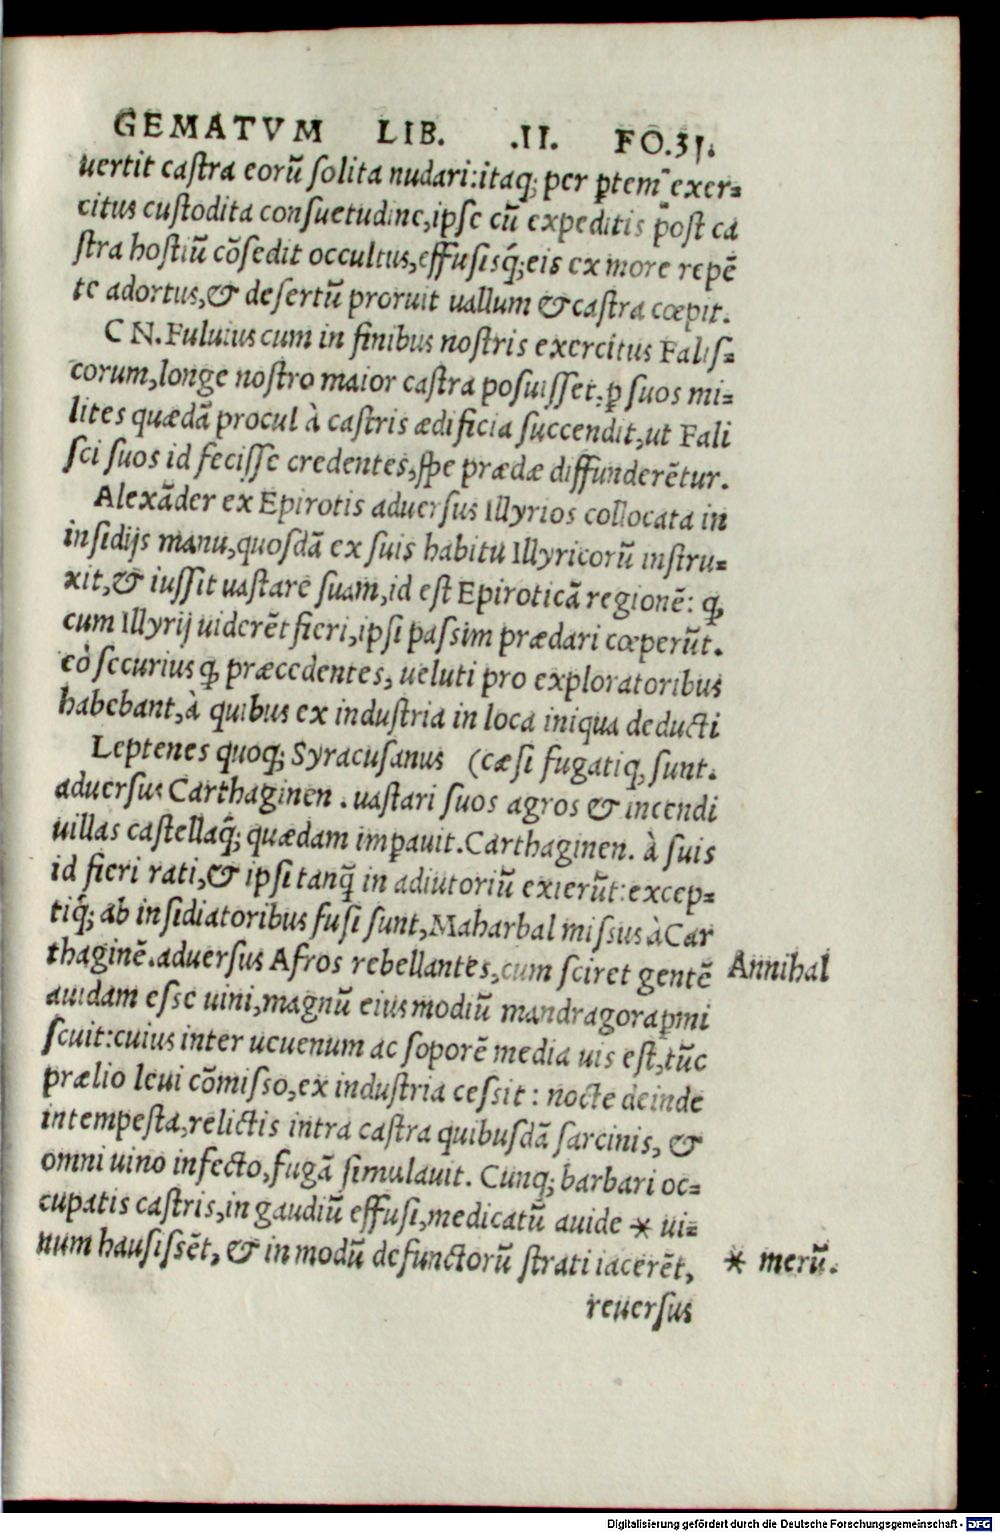 GEMATVM LIB. .II. FO.31.
uertit castra eorũ solita nudari:itaq; per ꝑtem exer=
citus custodita consuetudine,ipse cũ expeditis post ca
stra hostiũ cõsedit occultus,effusisq́;eis ex more repẽ
te adortus,& desertũ proruit uallum & castra cœpit.
CN.Fuluius cum in finibus nostris exercitus Falis=
corum,longe nostro maior castra posuisset:ꝑ suos mi=
lites quædã procul à castris ædificia succendit,ut Fali
sci suos id fecisse credentes,spe prædæ diffunderẽtur.
Alexãder ex Epirotis aduersus Illyrios collocata in
insidijs manu,quosdã ex suis habitu Illyricorũ instru=
xit,& iussit uastare suam,id est Epiroticã regionẽ: q,
cum Illyrij uiderẽt fieri,ipsi passim prædari cœperũt.
eò securius q, præcedentes, ueluti pro exploratoribus
habebant,à quibus ex industria in loca iniqua deducti
Leptenes quoq; Syracusanus (cæsi fugatiq, sunt.
aduersus Carthaginen . uastari suos agros & incendi
uillas castellaq́; quædam imꝑauit.Carthaginen. à suis
id fieri rati,& ipsi tanq̃ in adiutoriũ exierũt:excep=
tiq́; ab insidiatoribus fusi sunt,Maharbal missus à Car
thaginẽ.aduersus Afros rebellantes,cum sciret gentẽ
auidam esse uini,magnũ eius modiũ mandragoraꝑmi
scuit:cuius inter ueuenum ac soporẽ media uis est,tũc
prælio leui cõmisso,ex industria cessit : nocte deinde
intempesta,relictis intra castra quibusdã sarcinis, &
omni uino infecto,fugã simulauit. Cunq; barbari oc=
cupatis castris,in gaudiũ effusi,medicatũ auide * ui=
num hausissẽt, & in modũ defunctorũ strati iacerẽt,
reuersus
Annibal
* merũ.
Digitalisierung gefördert durch die Deutsche Forschungsgemeinschaft - DFG